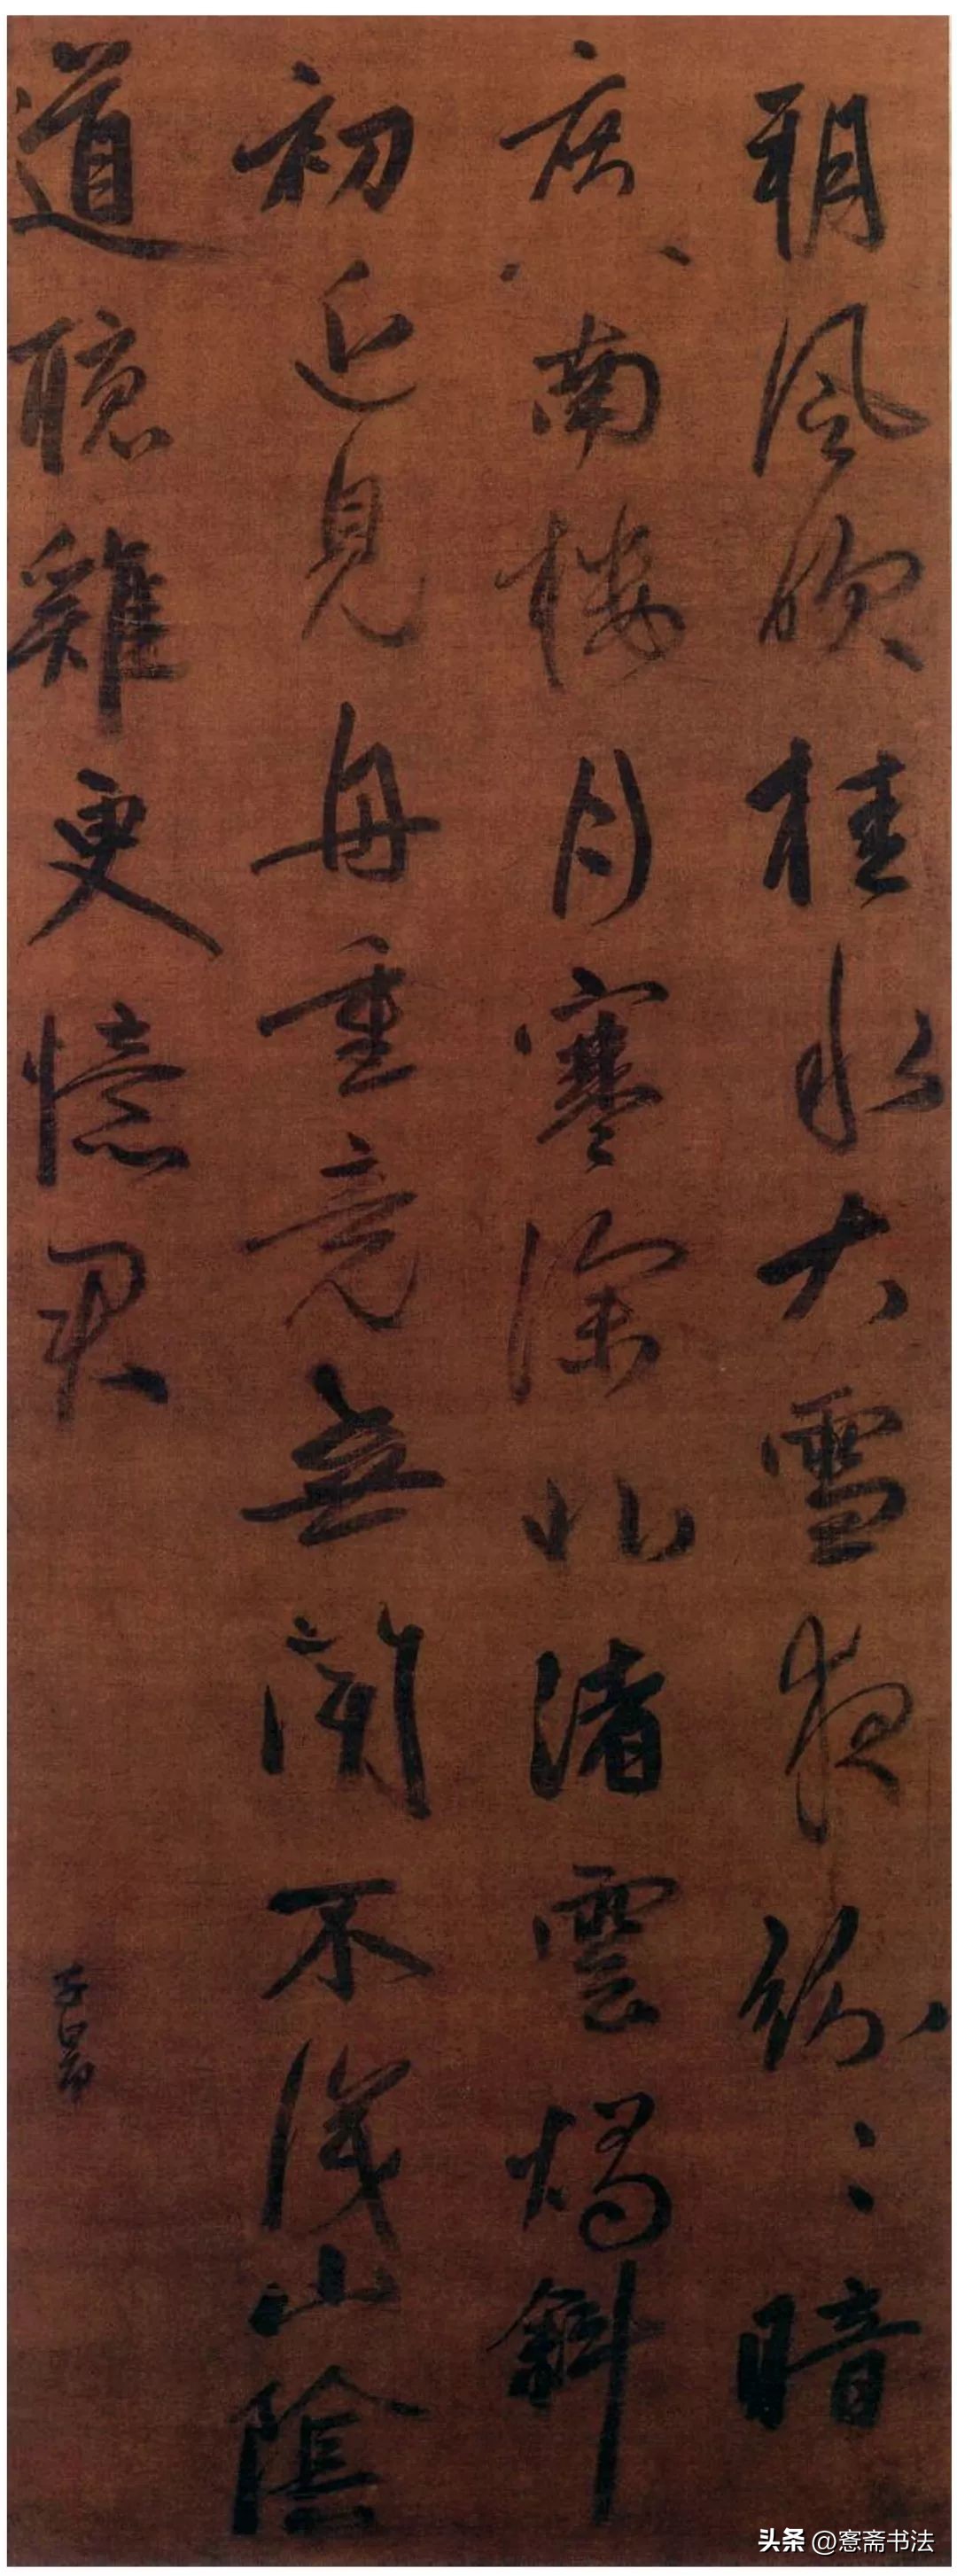 朔風吹桂水大雪夜紛〻暗
度南樓月寒深北渚雲燭斜
初近見舟重竟無聞不識山陰
道聽雞更憶君
子昂
头条 @愙斋书法